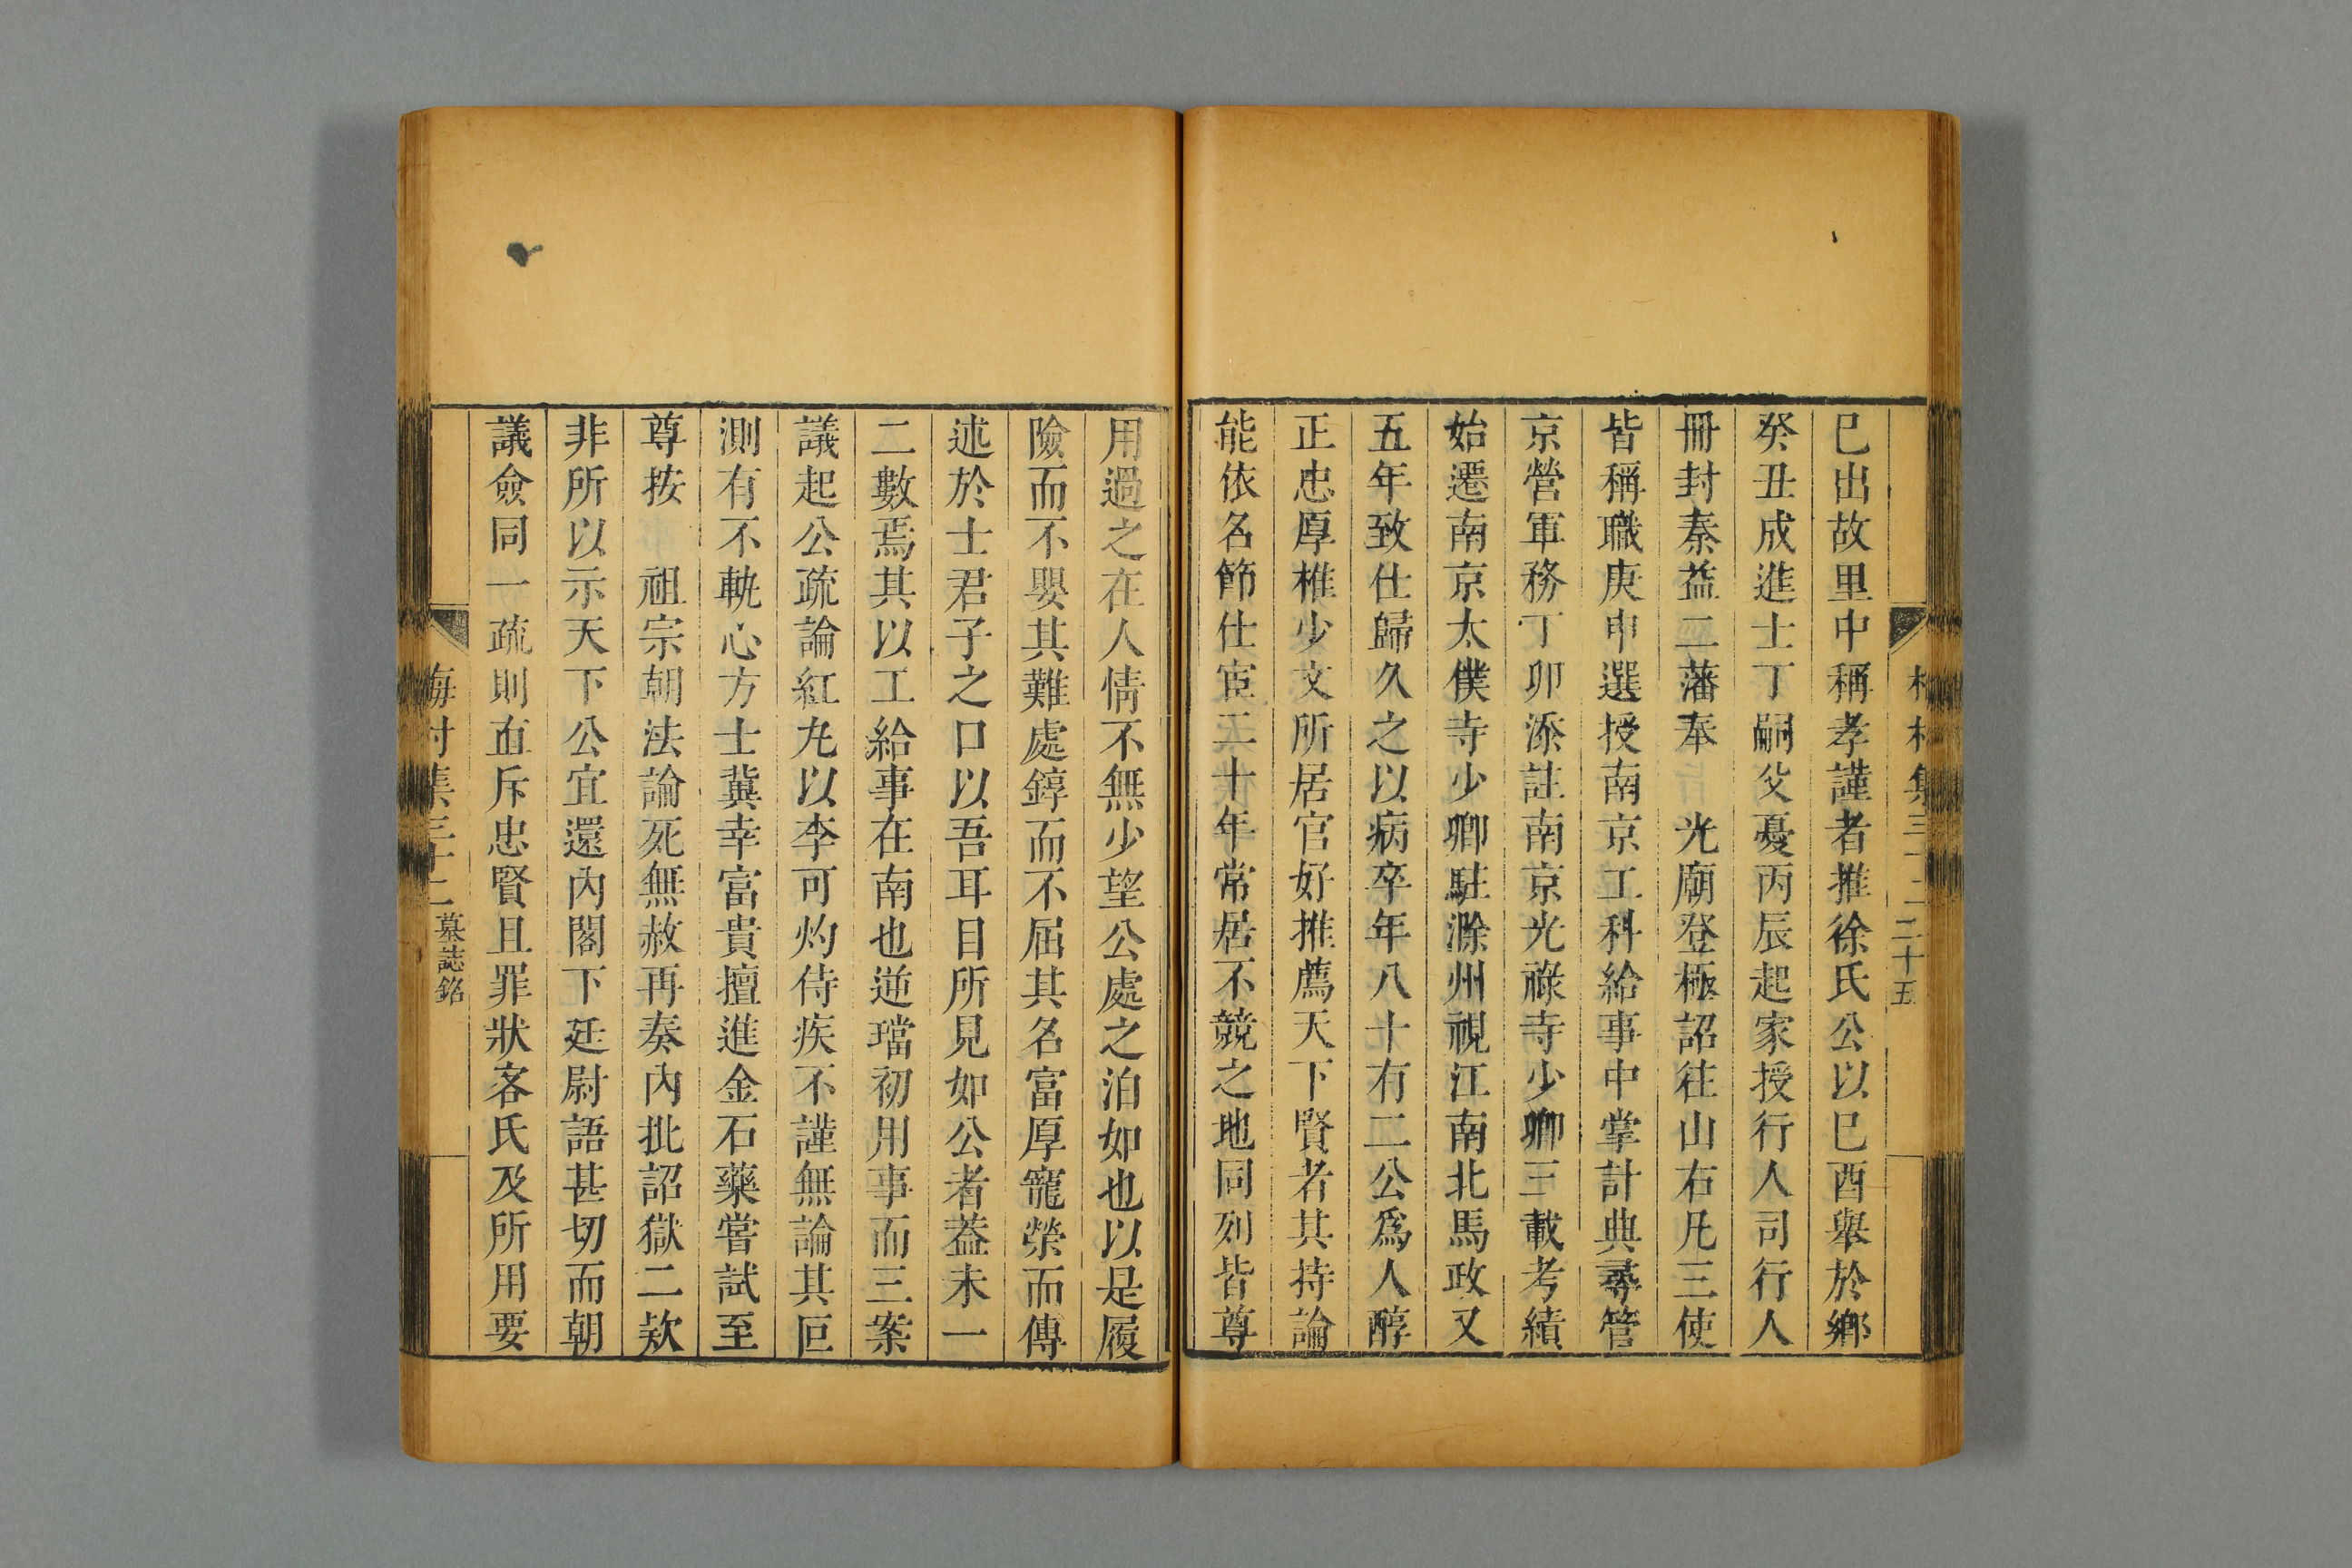 巳出故里中稱孝謹者推徐氏公以巳酉舉於鄉
癸丑成進士丁嗣父憂丙辰起家授行人司行人
冊封秦益二藩奉 光廟登極詔往山右凡三使
皆稱職庚申選授南京工科給事中掌計典尋管
京營軍務丁卯添註南京光祿寺少卿三載考績
始遷南京太僕寺少卿駐滁州視江南北馬政又
五年致仕歸久之以病卒年八十有二公爲人醇
正忠厚椎少文所居官好推薦天下賢者其持論
能依名節仕宦二十年常居不競之地同列皆尊
用過之在人情不無少望公處之泊如也以是履
險而不嬰其難處錞而不屈其名富厚寵榮而傳
述於士君子之口以吾耳目所見如公者葢未一
二數焉其以工給事在南也逆璫初用事而三案
議起公疏論紅丸以李可灼侍疾不謹無論其叵
測有不軌心方士冀幸富貴擅進金石藥嘗試至
尊按 祖宗朝法論死無赦再奏內批詔獄二欵
非所以示天下公宜還內閣下廷尉語甚切而朝
議僉同一疏則直斥忠賢且罪狀客氏及所用要
梅村集三十二
墓誌銘
二十五